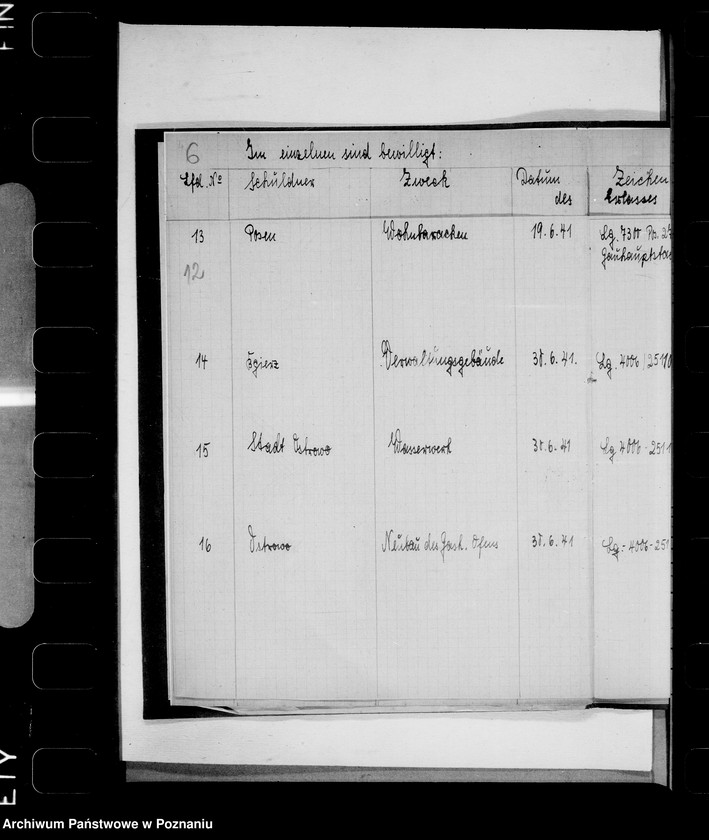 6 Im einzelnen sind bewilligt:
Lfd. No Schuldner Zweck Datum Zeichen
des Erlasses
13 Posen Wohnbaracken 19.6.41 Lg. 7300 Po. 2
Gauhauptkas
12
14 Zgierz Verwaltungsgebäude 30.6.41. Lg. 4006/2511
15 Stadt Ostrowo Wasserwerk 30.6.41 Lg 4006-251
16 Ostrowo Neubau des Gask. Ofens 30.6.41 Lg.-4006-251
FIN
ETY
Archiwum Państwowe w Poznaniu